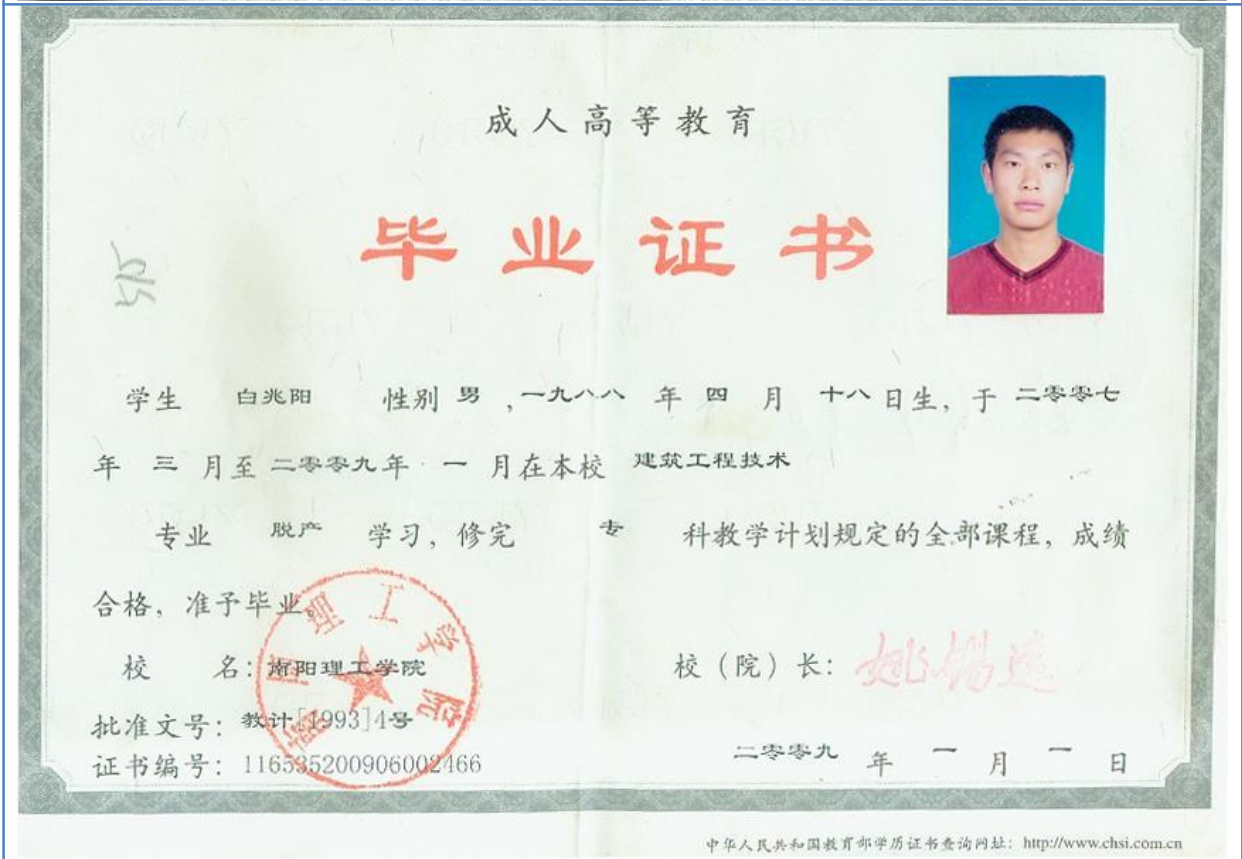 成人高等教育
毕业证书
学生 白兆阳 性别 男 ,一九八八 年 四 月 十八 日生, 于 二零零七
年 三 月至 二零零九 年 一 月在本校 建筑工程技术
专业 脱产 学习, 修完 专 科教学计划规定的全部课程, 成绩
合格, 准予毕业。
校 名: 南阳理工学院 校(院)长: 姚锡远
南阳理工学院
批准文号: 教计[1993]4号
证书编号: 116535200906002466 二零零九 年 一 月 一 日
中华人民共和国教育部学历证书查询网址: http://www.chsi.com.cn